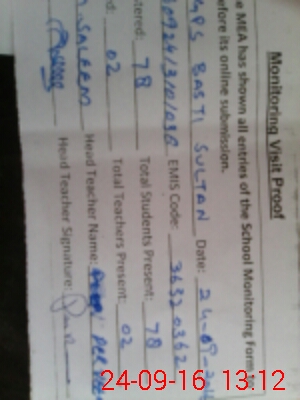 Monitoring Visit Proof
e MEA has shown all entries of the School Monitoring Form
efore its online submission.
GPS BASTI SULTAN Date: 24-09-
EMIS Code: 36320362
stered: 78 Total Students Present: 78
ed: 02 Total Teachers Present: 02
SALEEM Head Teacher Name:
Head Teacher Signature:
24-09-16 13:12